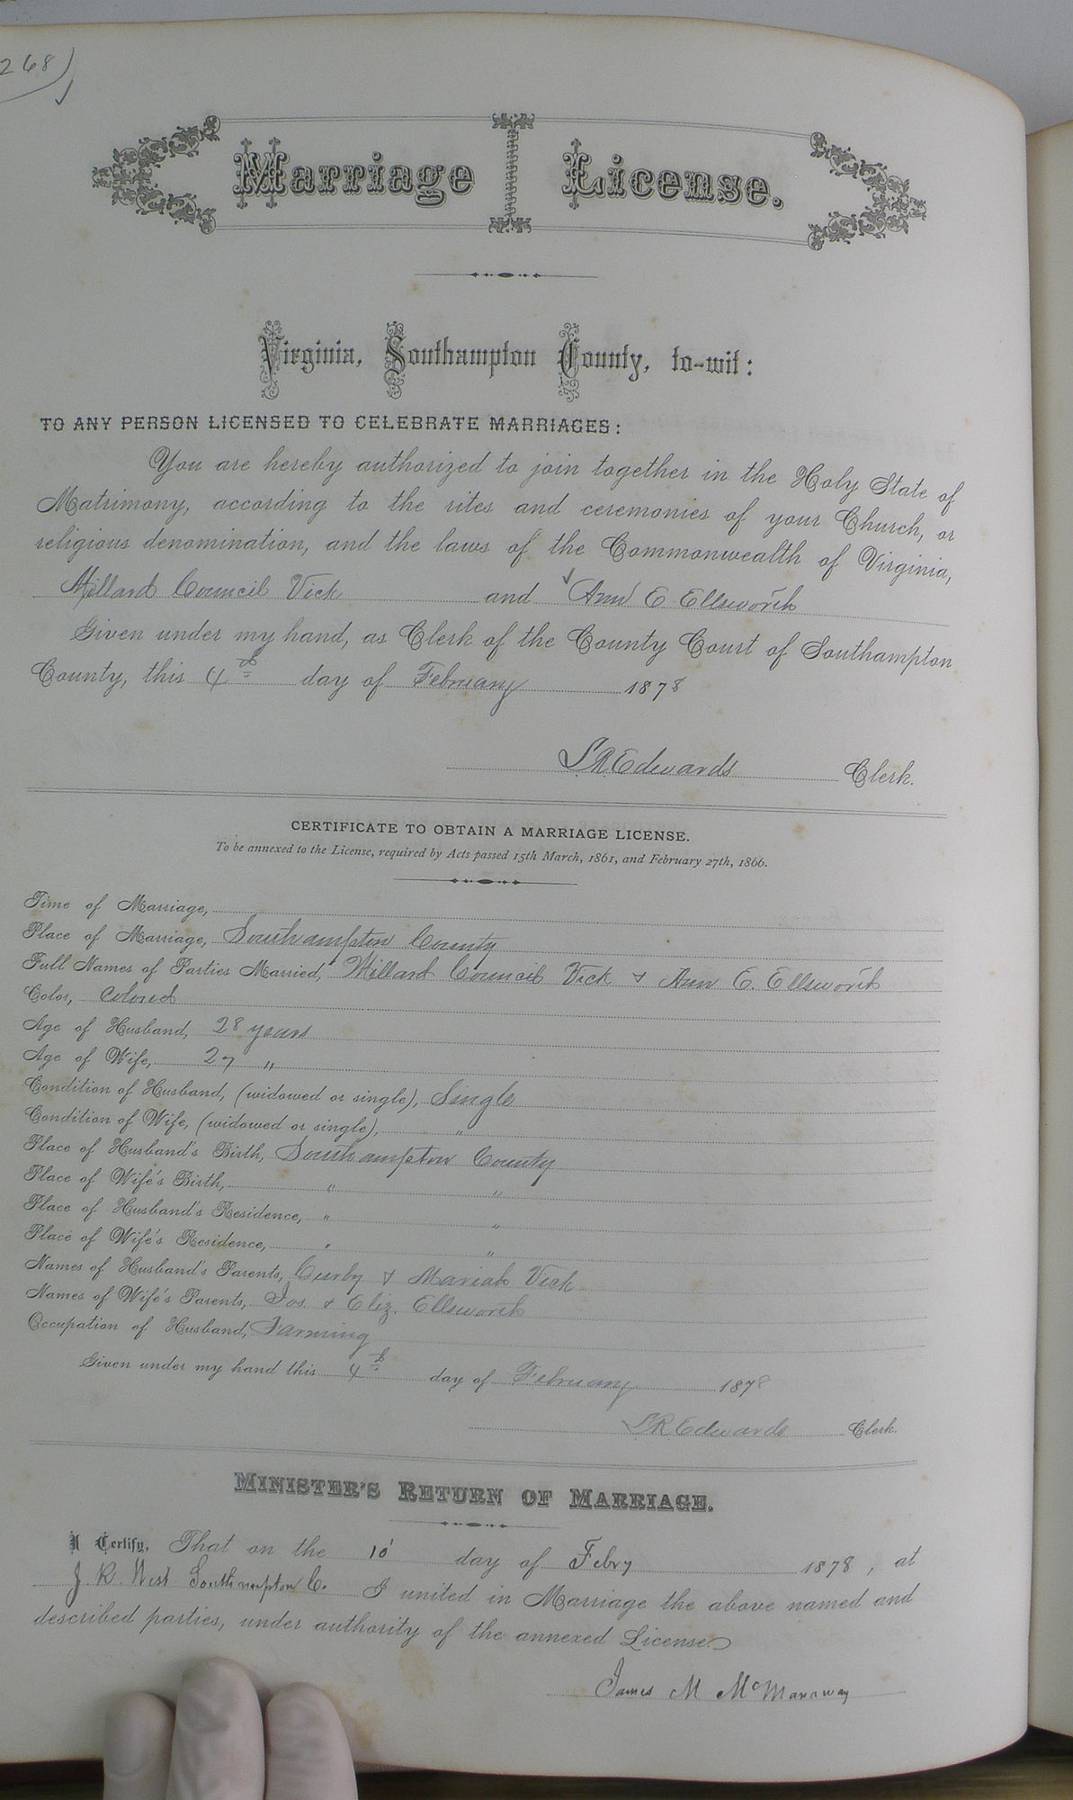 268)
Marriage License.
Virginia, Southampton County, to-wit:
TO ANY PERSON LICENSED TO CELEBRATE MARRIAGES:
You are hereby authorized to join together in the Holy State of
Matrimony, according to the rites and ceremonies of your Church, or
religious denomination, and the laws of the Commonwealth of Virginia,
Millard Council Vick and Ann E Ellsworth
Given under my hand, as Clerk of the County Court of Southampton
County, this 4th day of February 1878
L.R. Edwards Clerk.
CERTIFICATE TO OBTAIN A MARRIAGE LICENSE.
To be annexed to the License, required by Acts passed 15th March, 1861, and February 27th, 1866.
Time of Marriage,
Place of Marriage, Southampton County
Full Names of Parties Married, Millard Council Vick & Ann E. Ellsworth
Color, Colored
Age of Husband, 28 years
Age of Wife, 27 "
Condition of Husband, (widowed or single), Single
Condition of Wife, (widowed or single), "
Place of Husband's Birth, Southampton County
Place of Wife's Birth, " "
Place of Husband's Residence, " "
Place of Wife's Residence, " "
Names of Husband's Parents, Curby & Mariah Vick
Names of Wife's Parents, Jos. & Eliz. Ellsworth
Occupation of Husband, Farming
Given under my hand this 4th day of February 1878
L R Edwards Clerk.
MINISTER'S RETURN OF MARRIAGE.
I Certify, That on the 10 day of Febry 1878, at
J. R. West Southampton Co. I united in Marriage the above named and
described parties, under authority of the annexed License.
James M McManaway